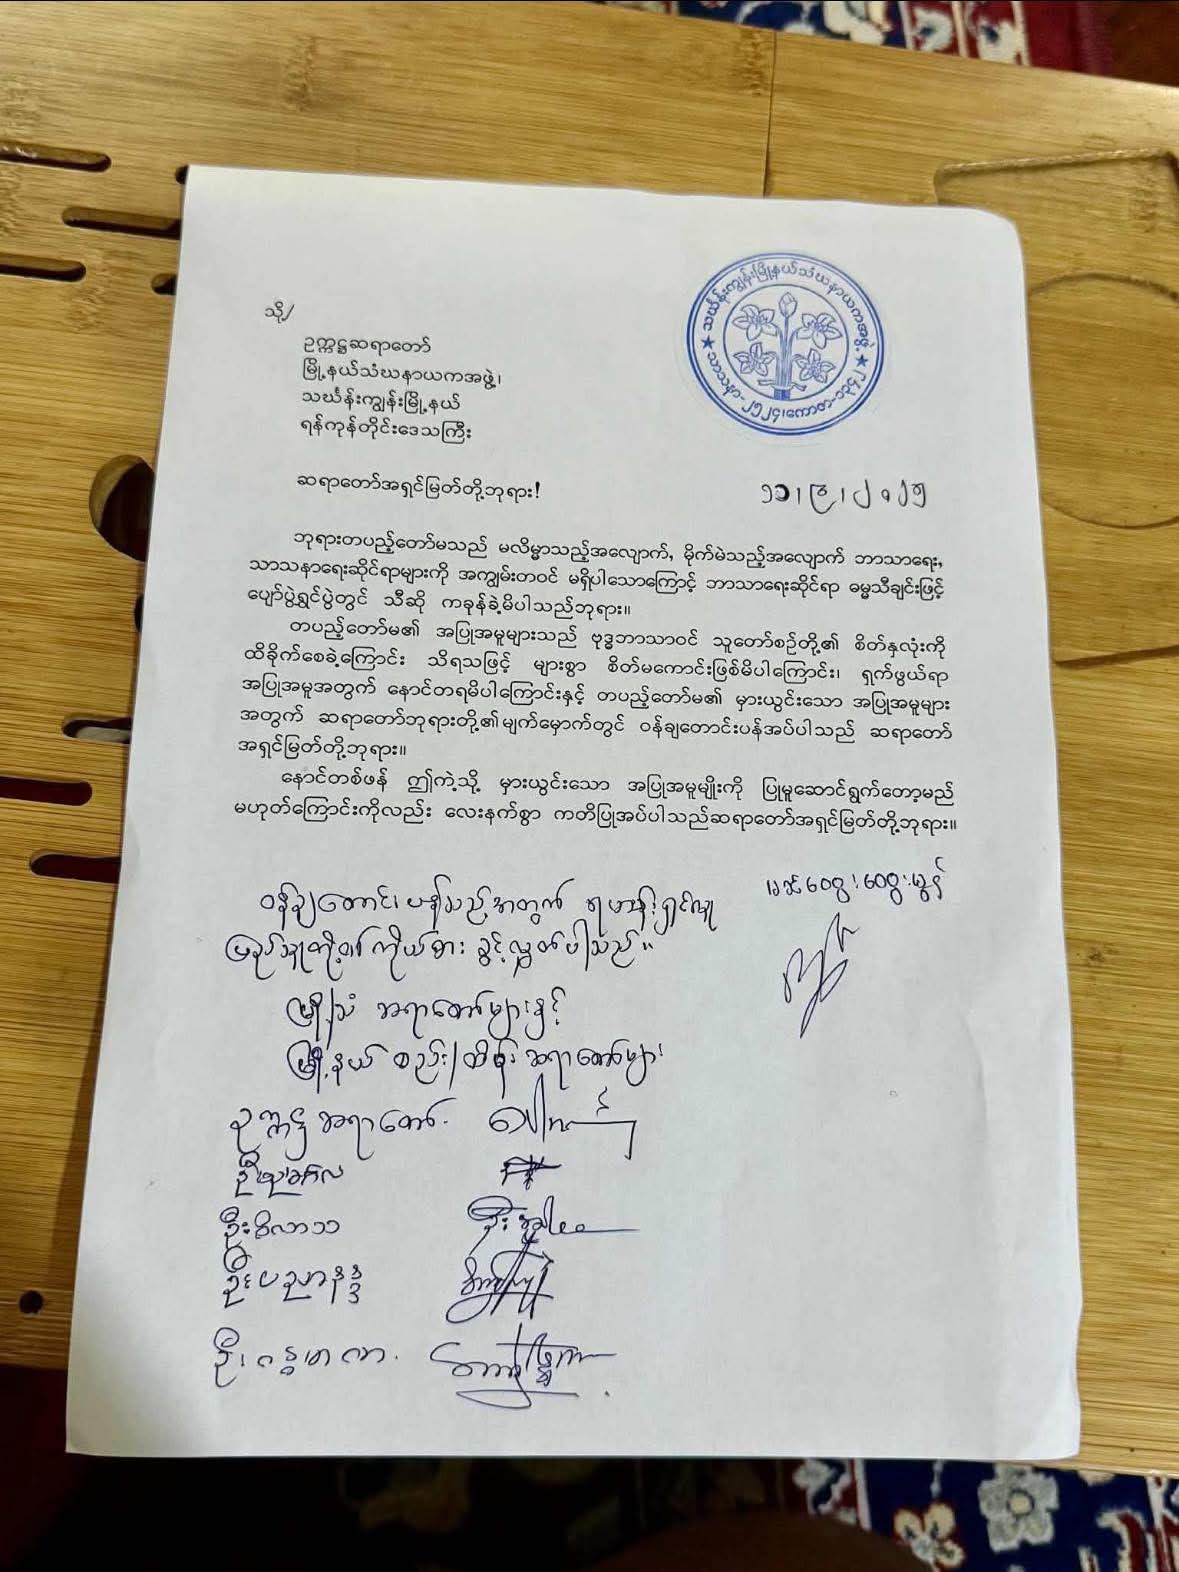 သို့/
ဥက္ကဋ္ဌဆရာတော်
မြို့နယ်သံဃနာယကအဖွဲ့၊
သင်္ဃန်းကျွန်းမြို့နယ်
ရန်ကုန်တိုင်းဒေသကြီး
သင်္ဃန်းကျွန်းမြို့နယ်သံဃနာယကအဖွဲ့
ဆရာတော်အရှင်မြတ်တို့ဘုရား!
ဘုရားတပည့်တော်မသည် မလိမ္မာသည့်အလျောက်, မိုက်မဲသည့်အလျောက် ဘာသာရေး,
သာသနာရေးဆိုင်ရာများကို အကျွမ်းတဝင် မရှိပါသောကြောင့် ဘာသာရေးဆိုင်ရာ ဓမ္မသီချင်းဖြင့်
ပျော်ပွဲရွှင်ပွဲတွင် သီဆို ကခုန်ခဲ့မိပါသည်ဘုရား။
တပည့်တော်မ၏ အပြုအမူများသည် ဗုဒ္ဓဘာသာဝင် သူတော်စဉ်တို့၏ စိတ်နှလုံးကို
ထိခိုက်စေခဲ့ကြောင်း သိရသဖြင့် များစွာ စိတ်မကောင်းဖြစ်မိပါကြောင်း၊ ရှက်ဖွယ်ရာ
အပြုအမူအတွက် နောင်တရမိပါကြောင်းနှင့် တပည့်တော်မ၏ မှားယွင်းသော အပြုအမူများ
အတွက် ဆရာတော်ဘုရားတို့၏မျက်မှောက်တွင် ဝန်ချတောင်းပန်အပ်ပါသည် ဆရာတော်
အရှင်မြတ်တို့ဘုရား။
နောင်တစ်ဖန် ဤကဲ့သို့ မှားယွင်းသော အပြုအမူမျိုးကို ပြုမူဆောင်ရွက်တော့မည်
မဟုတ်ကြောင်းကိုလည်း လေးနက်စွာ ကတိပြုအပ်ပါသည်ဆရာတော်အရှင်မြတ်တို့ဘုရား။
ဝန်ချတောင်းပန်သည့်အတွက် ရဟန်းရှင်လူ
ခွင့်လွှတ်ပါသည်။
မြို့/သံ ဆရာတော်များနှင့်
မြို့နယ် စည်း/ထိန်း ဆရာတော်များ
ဥက္ကဋ္ဌဆရာတော်
ဦးဝိလာသ
ဦးပညာနန္ဒ